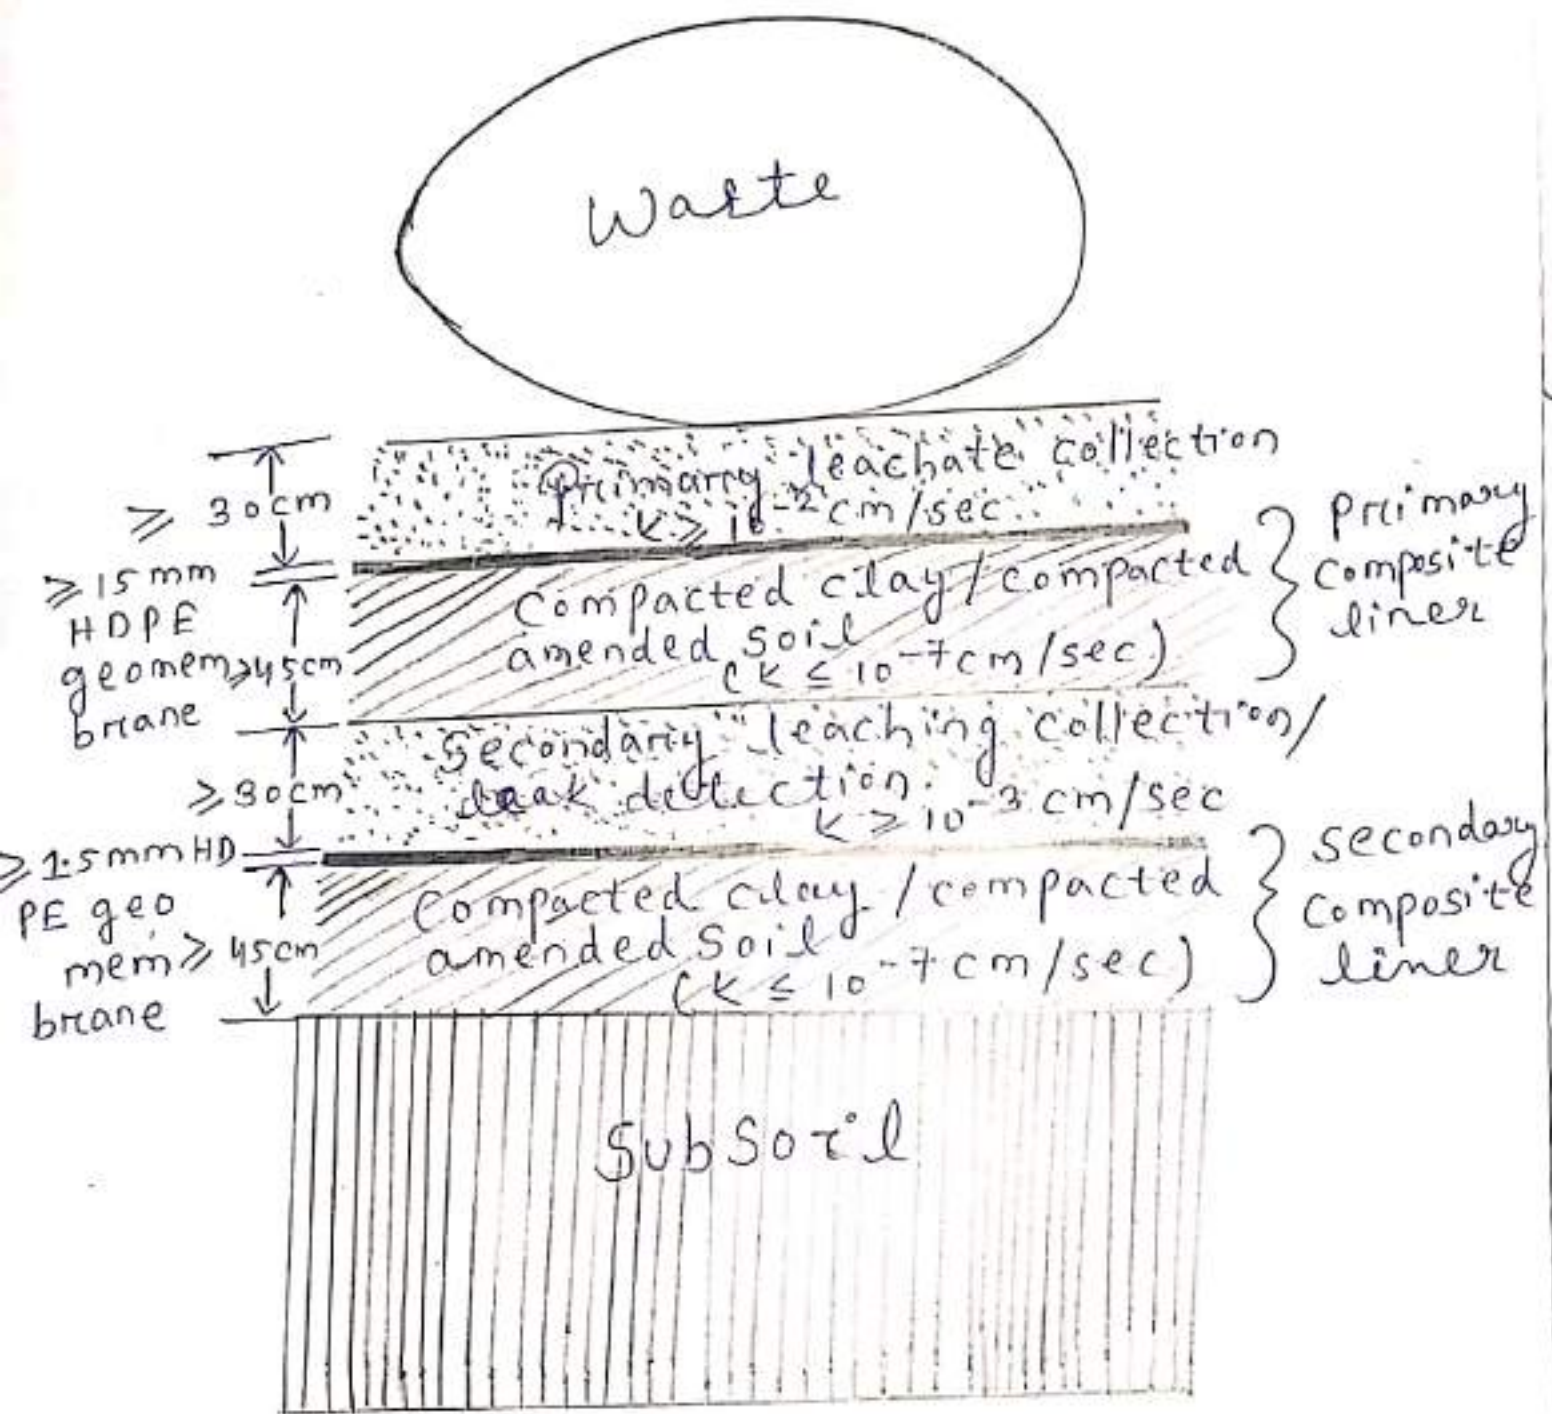 Waste
Primary leachate collection
K ≥ 10⁻² cm/sec
≥ 30cm
≥ 15mm
HDPE
geomem
brane
≥45cm
Compacted clay / compacted
amended soil
(K ≤ 10⁻⁷ cm/sec)
Primary
composite
liner
Secondary leaching collection/
leak detection.
K ≥ 10⁻³ cm/sec
≥30cm
≥ 1.5mm HD
PE geo
mem
brane
≥ 45cm
Compacted clay / compacted
amended soil
(K ≤ 10⁻⁷ cm/sec)
Secondary
composite
liner
Subsoil